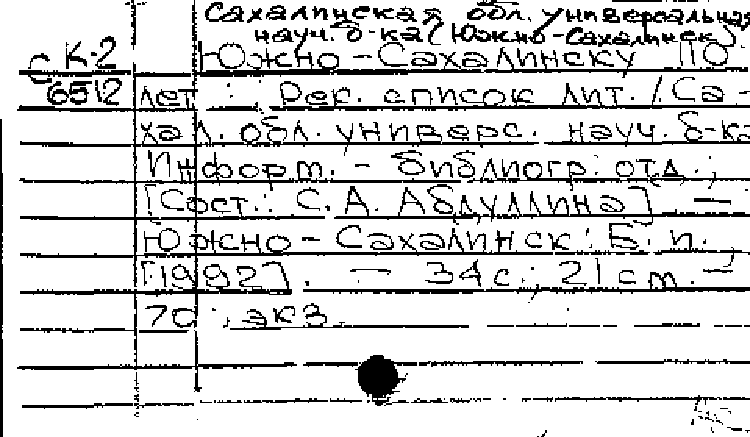 Сахалинская обл. универсальная
науч. б-ка (Южно-Сахалинск)
К-2 Южно-Сахалинску 110
С 6512 лет : Рек. список лит. / Са-
хал. обл. универс. науч. б-ка
Информ.-библиогр. отд.;
[Сост.: С. А. Абдуллина]. —
Южно-Сахалинск: Б. и.,
[1992]. — 34 с.; 21 cm. —
70 экз.